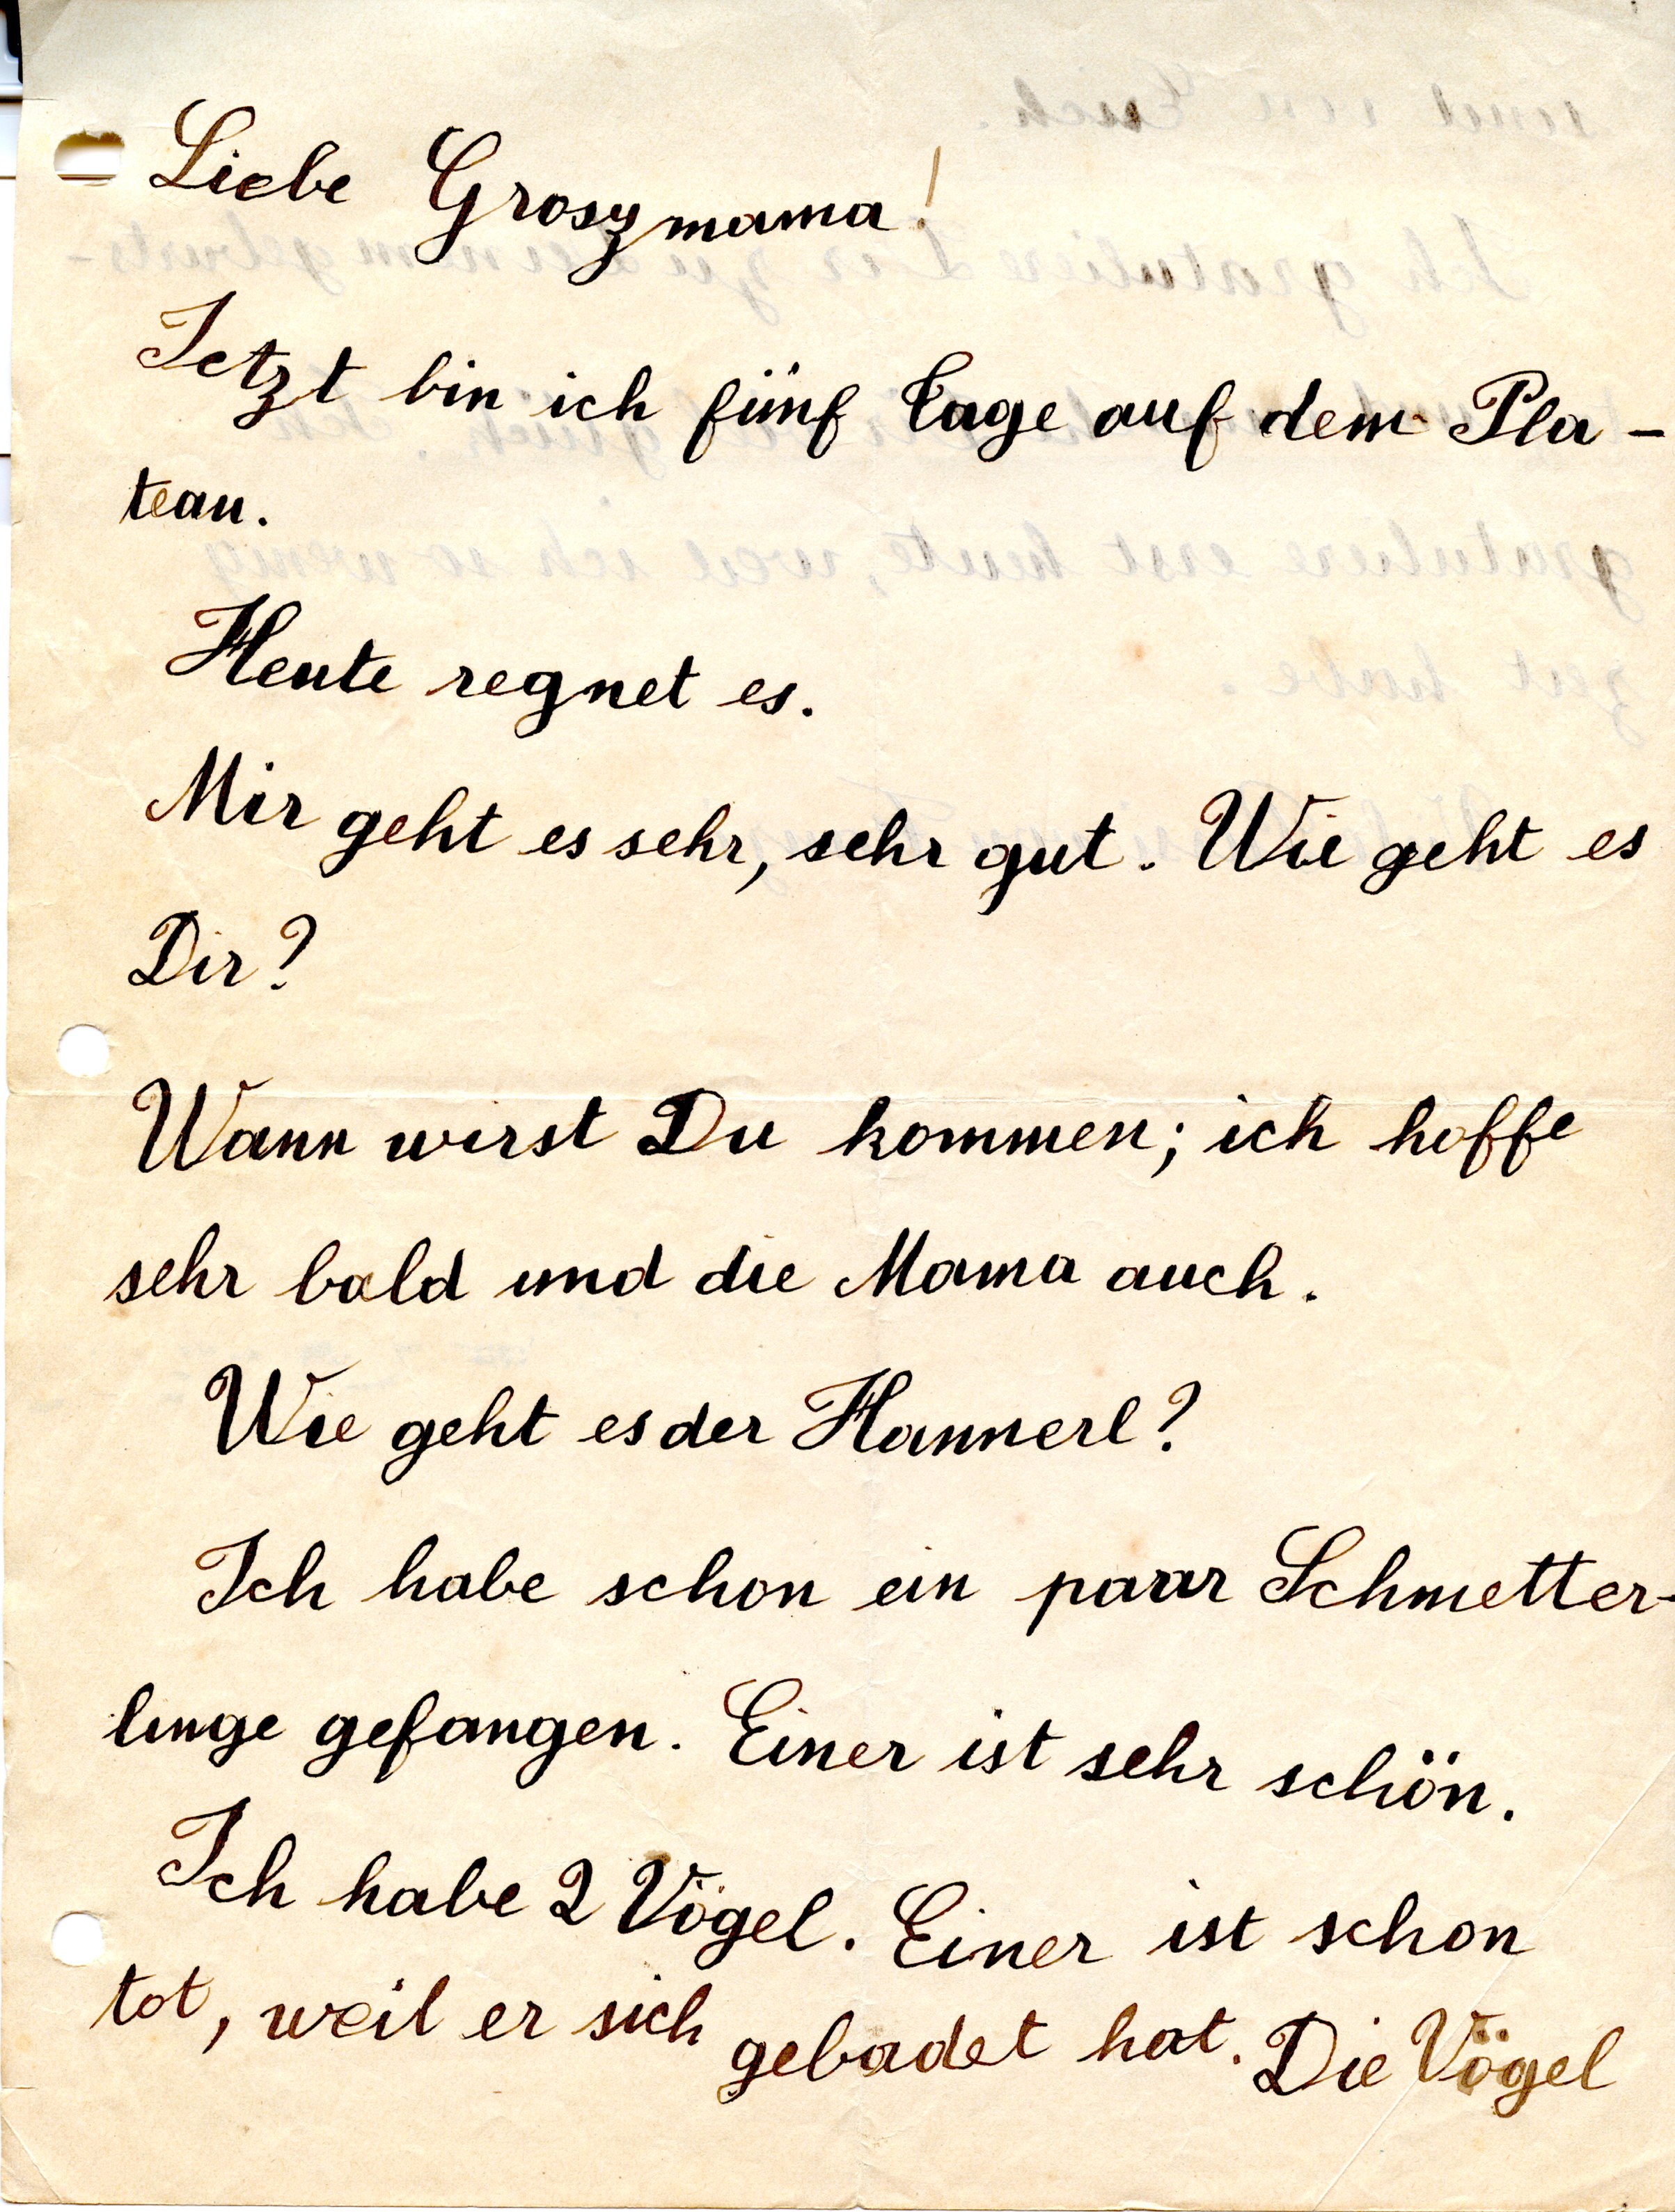 Liebe Groszmama!
Jetzt bin ich fünf Tage auf dem Pla-
teau.
Heute regnet es.
Mir geht es sehr, sehr gut. Wie geht es
Dir?
Wann wirst Du kommen; ich hoffe
sehr bald und die Mama auch.
Wie geht es der Hannerl?
Ich habe schon ein paar Schmetter-
linge gefangen. Einer ist sehr schön.
Ich habe 2 Vögel. Einer ist schon
tot, weil er sich gebadet hat. Die Vögel